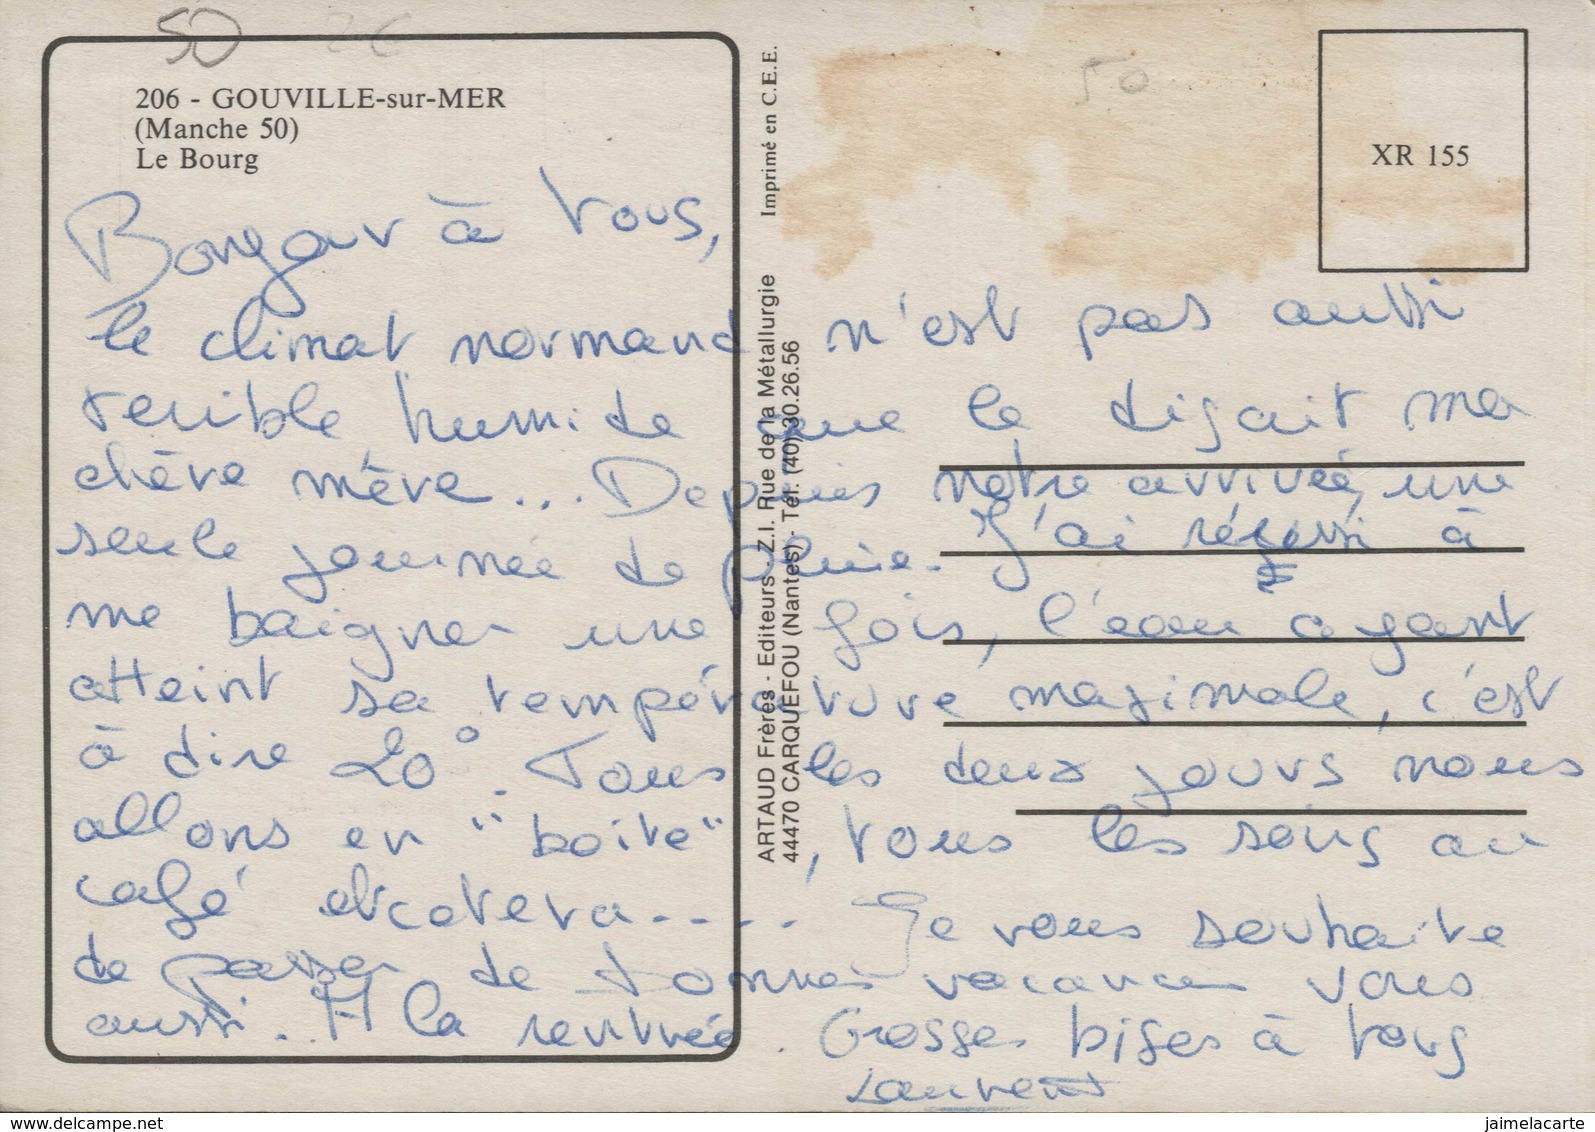 50 2€
50
206 - GOUVILLE-sur-MER
(Manche 50)
Le Bourg
XR 155
Imprimé en C.E.E.
ARTAUD Frères - Editeurs - Z.I. Rue de la Métallurgie
44470 CARQUEFOU (Nantes) - Tél. (40) 30.26.56
Bonjour à tous,
le climat normand n'est pas aussi
terrible humide que le disait ma
chère mère... Depuis notre arrivée, une
seule journée de pluie. J'ai réussi à
me baigner une fois, l'eau ayant
atteint sa température maximale, c'est
à dire 20°. Tous les deux jours nous
allons en "boite", tous les soirs au
café etcetera.... Je vous souhaite
de passer de bonnes vacances vous
aussi. A la rentrée. Grosses bises à tous
Laurent
jaimelacarte
delcampe.net